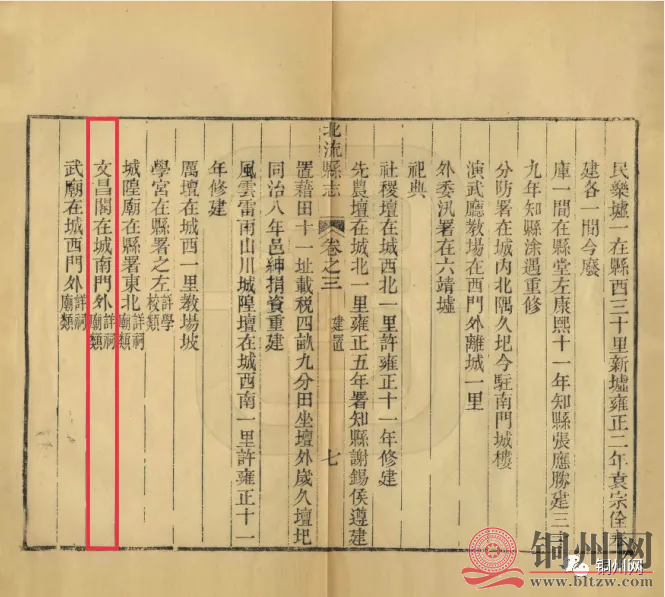 民樂墟一在縣西三十里新墟雍正二年袁宗佺
建各一間今廢
庫一間在縣堂左康熙十一年知縣張應勝建三
九年知縣涂遇重修
分防署在城內北隅久圮今駐南門城樓
演武廳教場在西門外離城一里
外委汛署在六靖墟
祀典
社稷壇在城西北一里許雍正十一年修建
先農壇在城北一里雍正五年署知縣謝錫侯遵建
置藉田十一址載税四畝九分田坐壇外歲久壇圯
同治八年邑紳捐資重建
北流縣志 卷之三 建置 七
風雲雷雨山川城隍壇在城西南一里許雍正十一
年修建
厲壇在城西一里教場坡
學宮在縣署之左詳學校類
城隍廟在縣署東北詳祠廟類
文昌閣在城南門外詳祠廟類
武廟在城西門外詳祠廟類
铜州网
www.bltzw.com
铜州网